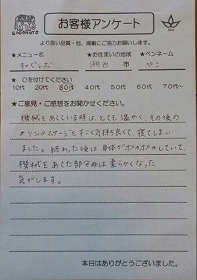 お客様アンケート
より良い品質・他、掲載にご協力お願いします。
★メニュー名 ★お住まいの地域 ★ペンネーム
市 ペこ
★ ○を付けてください
10代 20代 30代 40代 50代 60代 70代~
★ご意見・ご感想をお聞かせください。
機械をあてている時は、とても温かく、その後の
オイルマッサージもすごく気持ち良くて、寝てしまい
ました。終わった後は身体がポカポカしていて、
機械をあてた部分は柔らかくなった
気がします。
本日はありがとうございました。